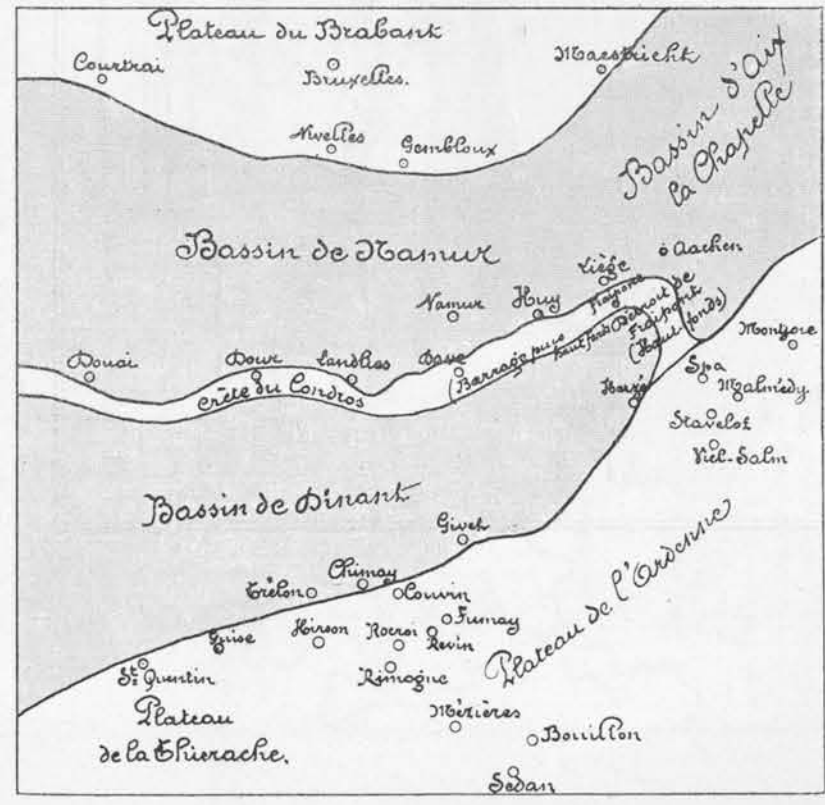 Plateau du Brabant
Courtrai
Bruxelles.
Maestricht
Bassin d'Aix
la Chapelle
Nivelles
Gembloux
Bassin de Namur
Aachen
Liège
Namur
Huy
Montjoie
Douai
Dour
Landlies
Dave
(Barrage puis
haut fond)
Détroit de
Fraipont
(Haut-fonds)
Crête du Condros
Spa
Malmédy
Harzé
Stavelot
Viel-Salm
Bassin de Dinant
Givet
Chimay
Trélon
Couvin
Fumay
Guise
Hirson
Rocroi
Revin
Plateau de l'Ardenne
St. Quentin
Rimogne
Plateau
de la Thierache.
Mézières
Bouillon
Sedan